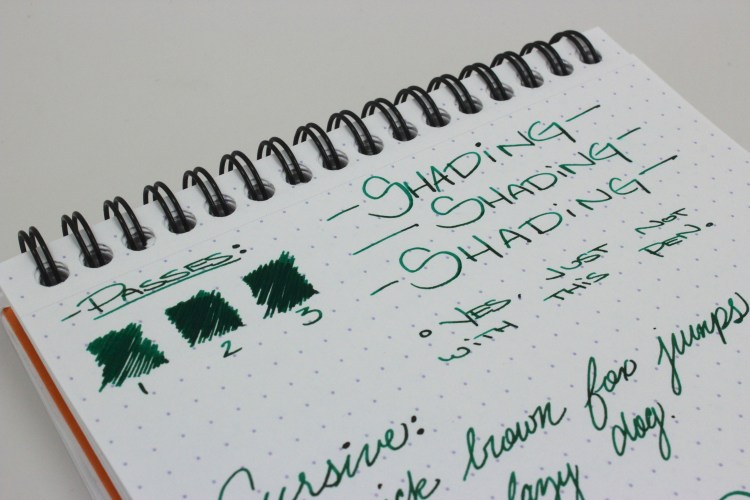 - SHADiNG -
- SHADiNG -
- SHADiNG -
- PASSES:
1 2 3
• YES, JUST NOT
WITH THIS PEN.
Cursive:
brown fox jumps
lazy dog.